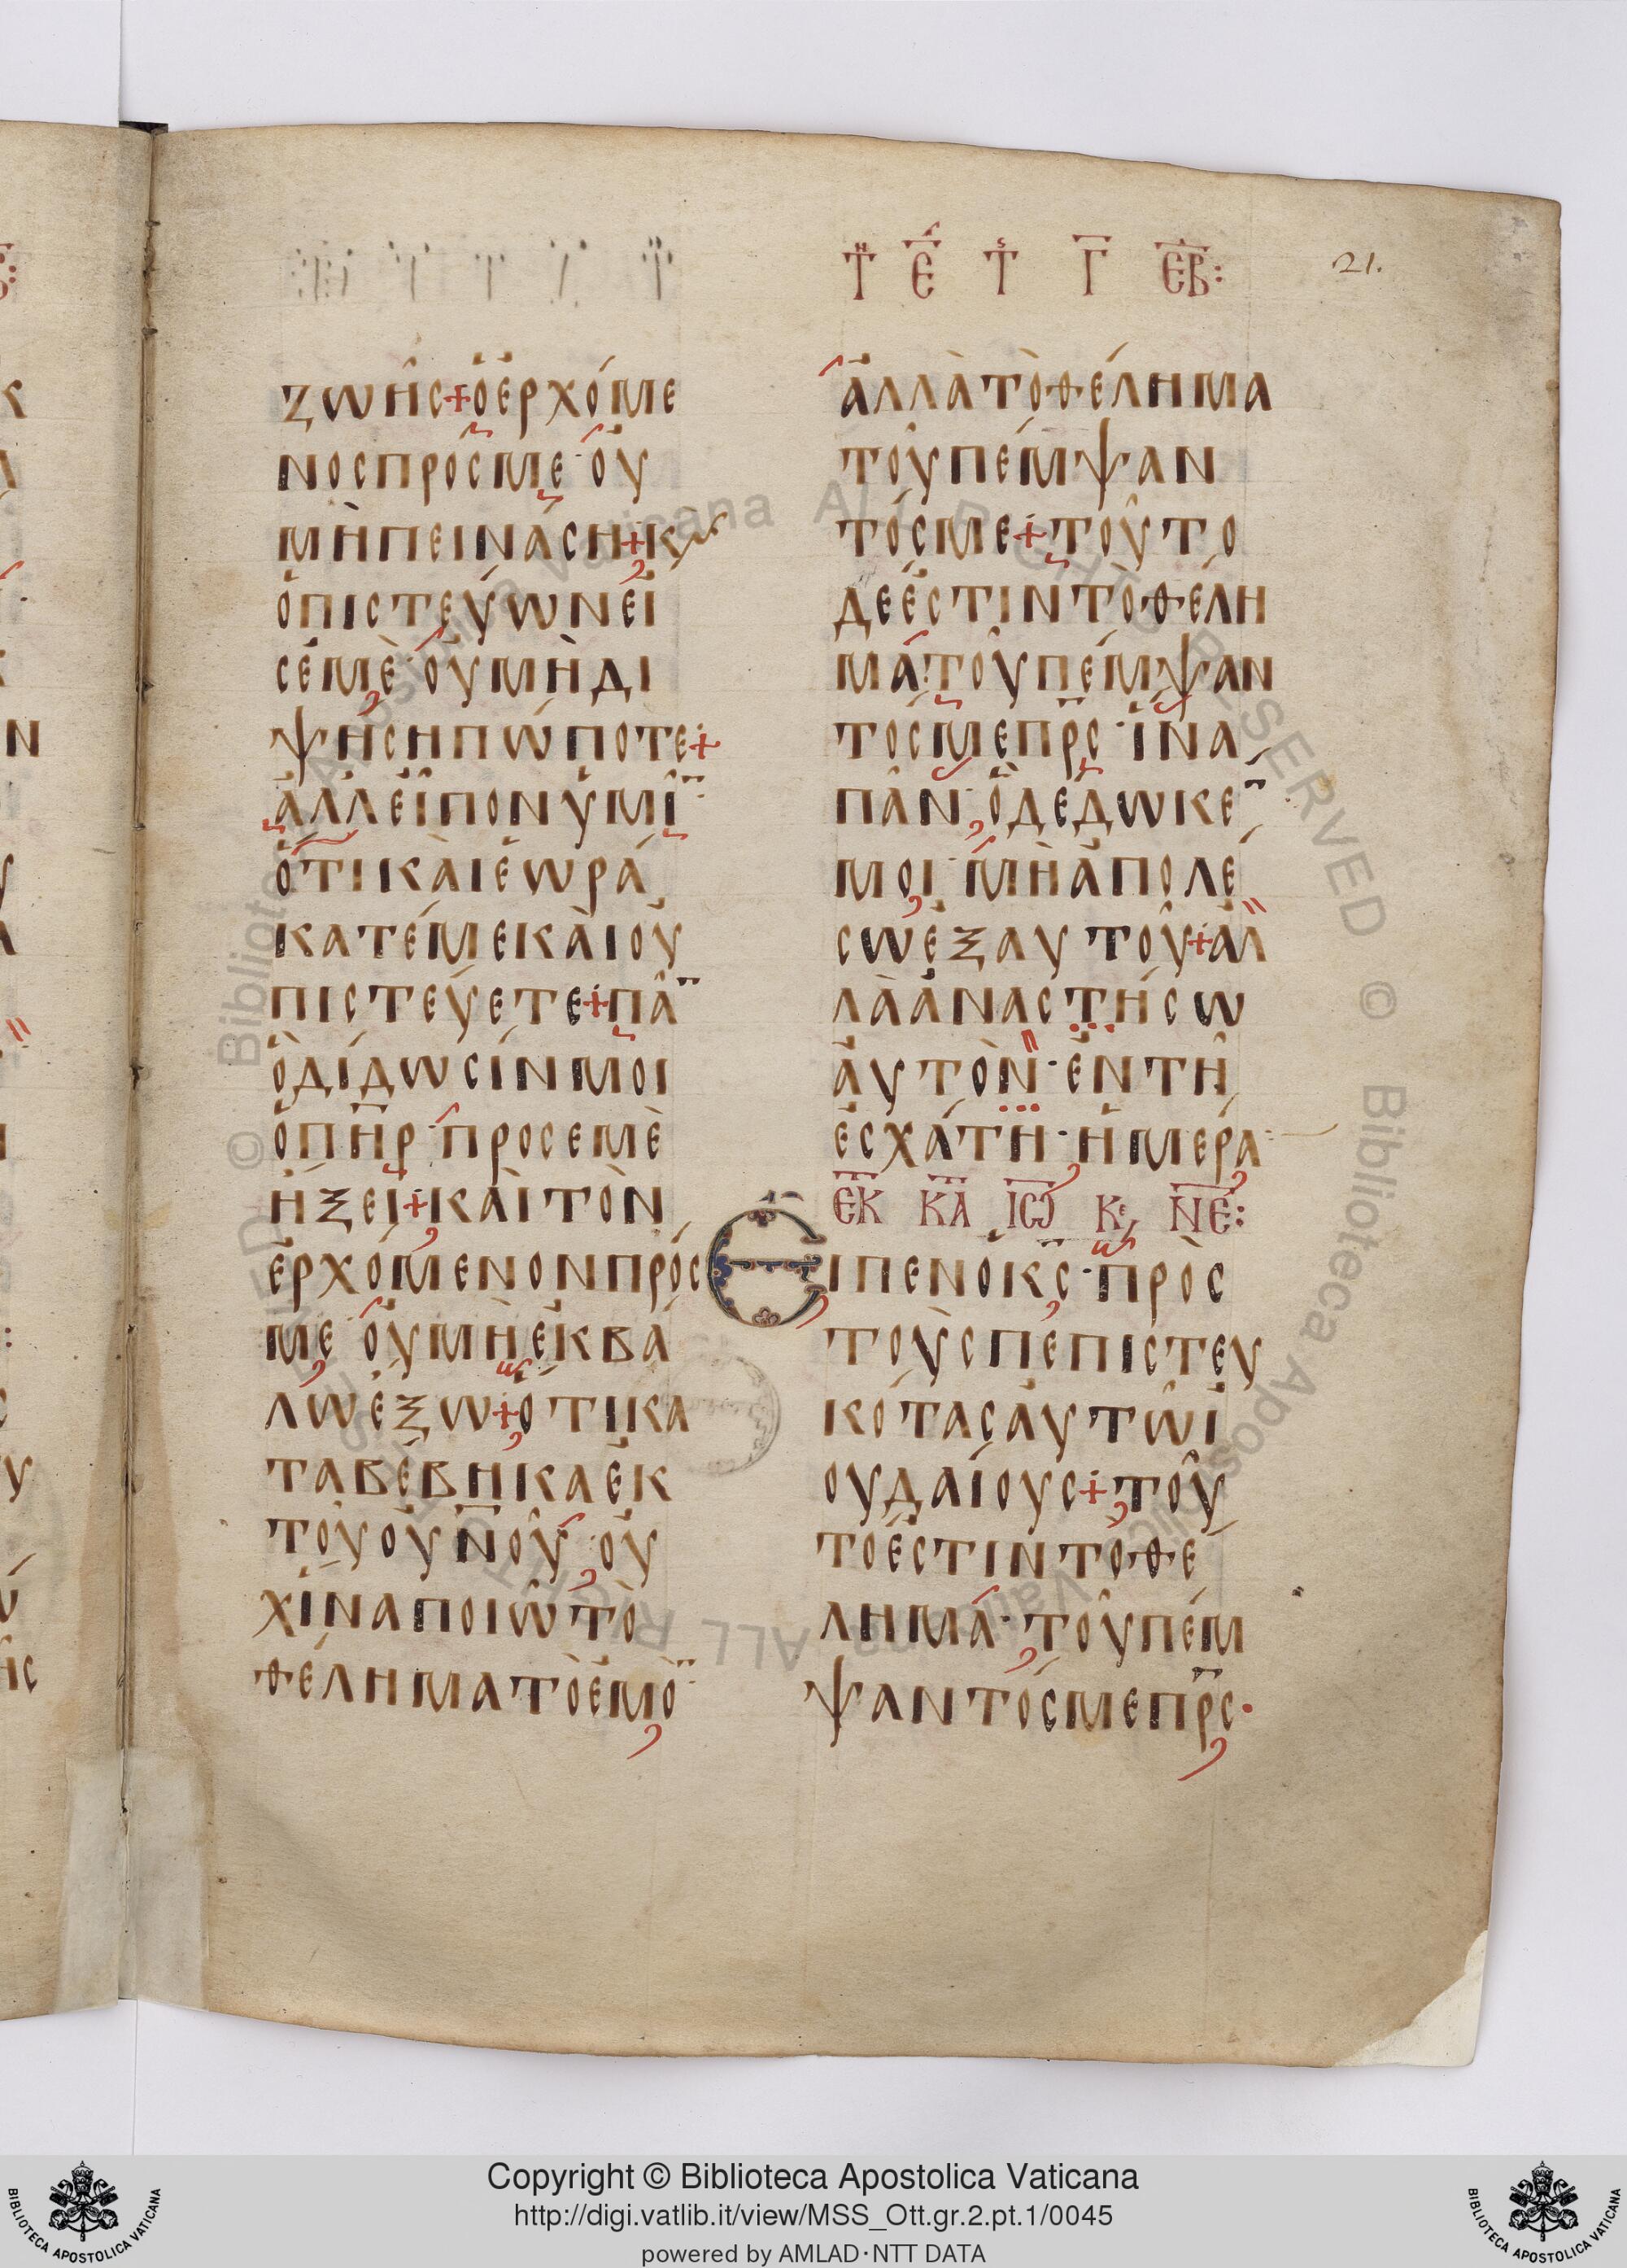 Τῌ Ε Τς Γ ΕΒ:
21.
ζωῆς + ὁ ἐρχόμε
νος πρός με· οὐ
μὴ πεινάση + κὰι
ὁ πιστεύων εἰ
σ ἐμὲ· οὐ μὴ δι
ψήση πώποτε +
ἀλλ εἶπον ὑμῖ¨
ὅτι κὰι ἑωρά
κατέ με κὰι οὐ
πιστεύετε + πᾶ¨
ὃ δίδωσίν μοι
ὁ πηρ· προς ἐμὲ
ἥξει + κὰι τὸν
ἐρχόμενον πρός
με· οὐ μὴ ἐκβα
λω ἔξω + ὅτι κα
ταβέβηκα ἐκ
του ουνοῦ· οὐ
χ ἵνα ποιῶ τὸ
θέλημα τὸ ἐμὸ¨
ἀλλὰ τὸ θέλημα
τοῦ πέμψαν
τός με + τοῦτο
δέ ἐστιν τὸ θέλη
μά· τοῦ πέμψαν
τός με πρς· ἵνα
πᾶν· ὃ δέδωκέ¨
μοι· μὴ ἀπολέ
σω ἐξ αυτοῦ + ἀλ
λὰ ἀναστήσω
ἀυτὸν· ἐν τῆ
ἐσχάτη· ἡμέρα·
ΕΚ ΚΑ ΙΩ Κε ΝΕ:
Ειπεν ὁ κς· πρὸς
τοὺς πεπιστευ
κότας ἀυτῶ ἰ
ουδαίους + τοῦ
το ἐστιν τὸ θέ
λημά· τοῦ πέμ
ψαντός με πρς·
Copyright © Biblioteca Apostolica Vaticana
http://digi.vatlib.it/view/MSS_Ott.gr.2.pt.1/0045
powered by AMLAD·NTT DATA
BIBLIOTECA APOSTOLICA VATICANA
BIBLIOTECA APOSTOLICA VATICANA